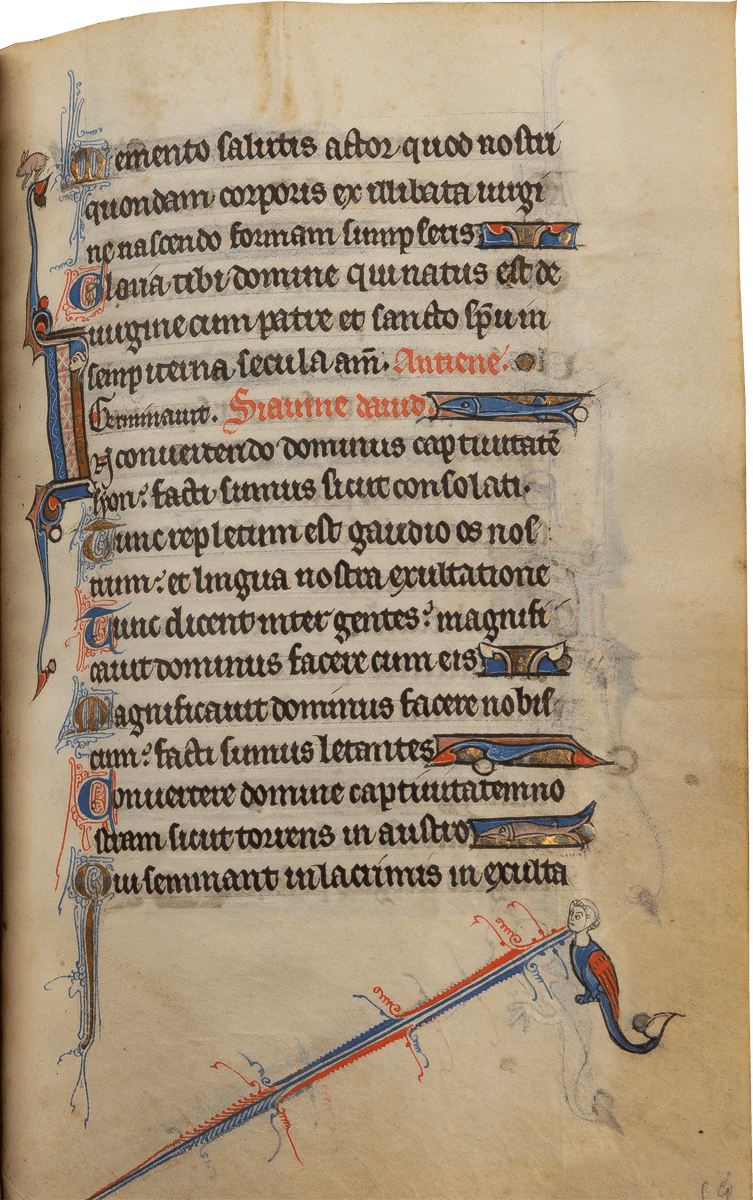 Memento salutis actor quod nostri
quondam corporis ex illibata uirgi
ne nascendo formam sumpseris
Gloria tibi domine qui natus est de
uirgine cum patre et sancto sp̄u in
sempiterna secula am̄. Antiene.
Germinauit. Siaume dauid.
In conuertendo dominus captiuitatē
syon: facti sumus sicut consolati.
Tunc repletum est gaudio os nos
trum: et lingua nostra exultatione
Tunc dicent inter gentes: magnifi
cauit dominus facere cum eis
Magnificauit dominus facere nobis
cum: facti sumus letantes
Conuertere domine captiuitatem no
stram sicut torrens in austro
Qui seminant in lacrimis in exulta